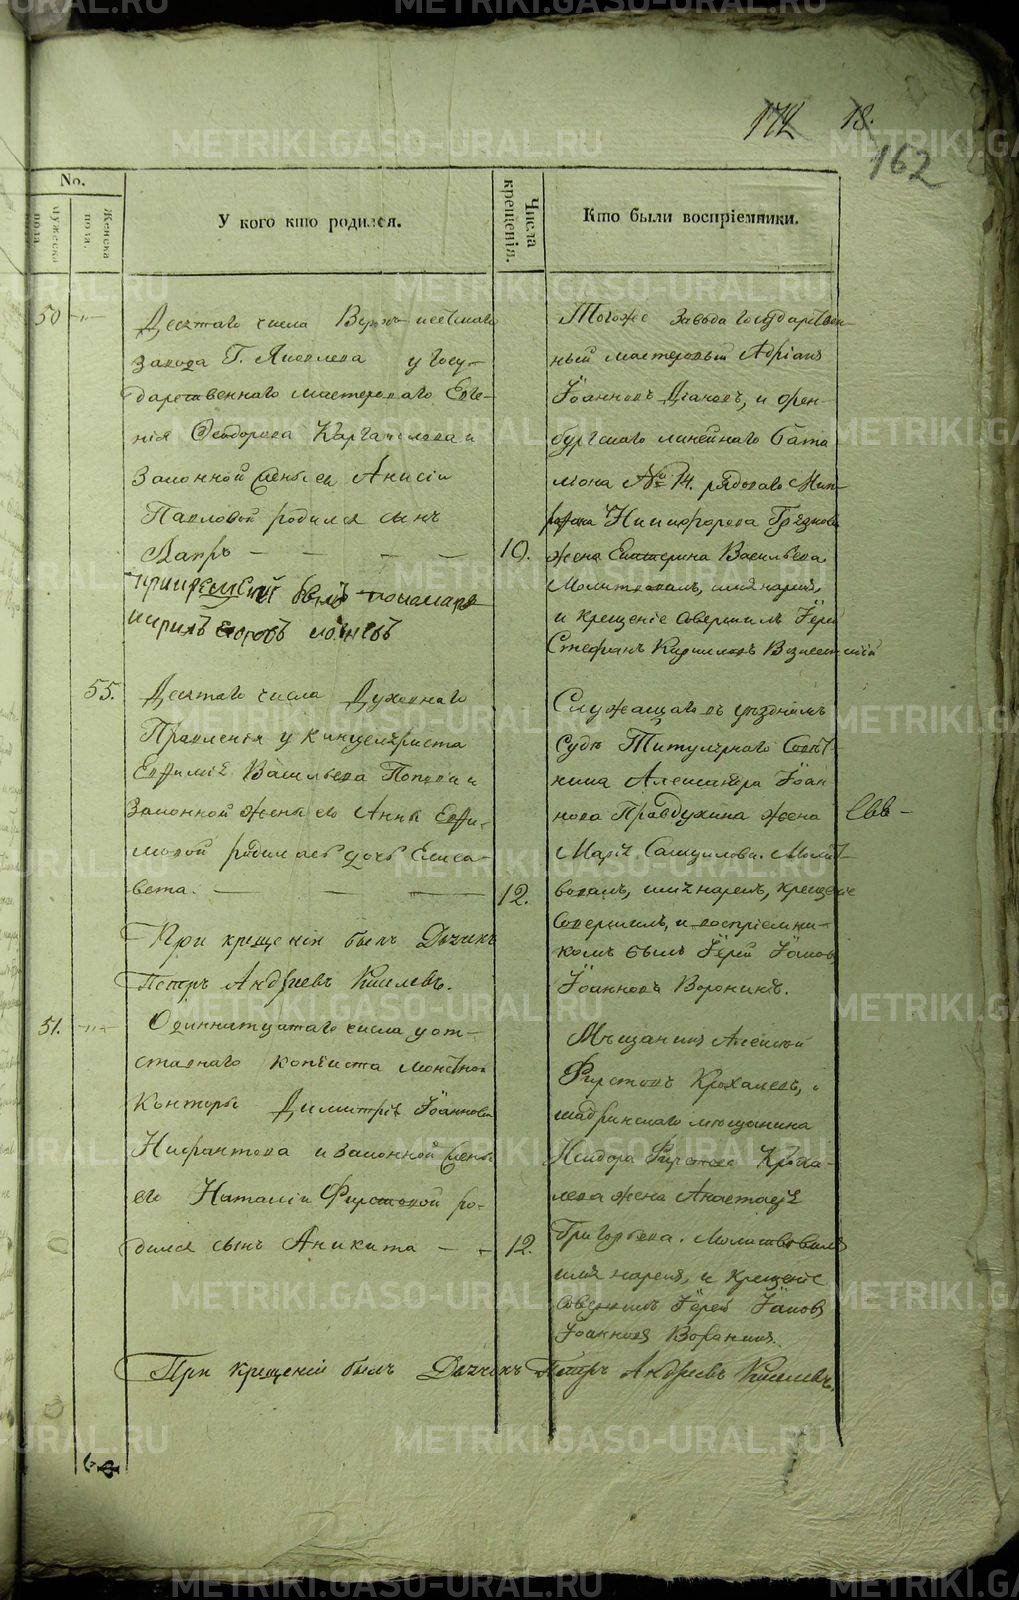 172 18.
162
No.
Мужеска пола.
Женска пола.
У кого кто родился.
Числа крещенія.
Кто были воспріемники.
50 -"-
Десятаго числа Верхъ-исетскаго
завода Г. Яковлева у госу-
дарственнаго мастероваго Евге-
нія Ѳеодорова и
законной жены его Анисіи
Павловой родился сынъ
10.
при крещеніи былъ пономарь
Кирилъ Егоровъ
Тогоже завода государствен-
ный мастеровый Адріанъ
Іоанновъ, и Орен-
бургскаго линейнаго бата
ліона № 14. рядоваго
Никифорова
жена Екатерина Васильева.
Молитвовалъ, имя нарекъ,
и крещеніе совершилъ Іерей
Стефанъ Кирилловъ Вознесенскій
55.
Десятаго числа Духовнаго
Правленія у канцеляриста
Евфимія Васильева Попова и
законной жены его Анны Евфи-
мовой родилась дочь Елиса-
вета.
12.
При крещеніи былъ Дьячекъ
Петръ Андреевъ Киселевъ.
Служащаго въ уѣздномъ
судѣ Титулярнаго Совѣт-
ника Александра Іоан
нова Правдухина жена
Марія Самуилова. Молит-
вовалъ, имя нарекъ, крещеніе
совершилъ, и воспріемни-
комъ былъ Іерей Іаковъ
Іоанновъ Воронинъ.
51. -"-
Одиннатцатаго числа у от-
ставнаго копіиста монетной
Канторы Димитрія Іоаннова
Нифантова и законной жены
его Наталіи Фирсовой ро-
дился сынъ Аникита
12.
Мѣщанинъ Алексѣй
Фирсовъ Крохалевъ, и
шадринскаго мѣщанина
Исидора Фирсова Кроха-
лева жена Анастасія
Григорьева. Молитвовалъ
имя нарекъ, и крещеніе
совершилъ Іерей Іаковъ
Іоанновъ Воронинъ.
При крещеніи былъ Дьячекъ Петръ Андреевъ Киселевъ.
METRIKI.GASO-URAL.RU